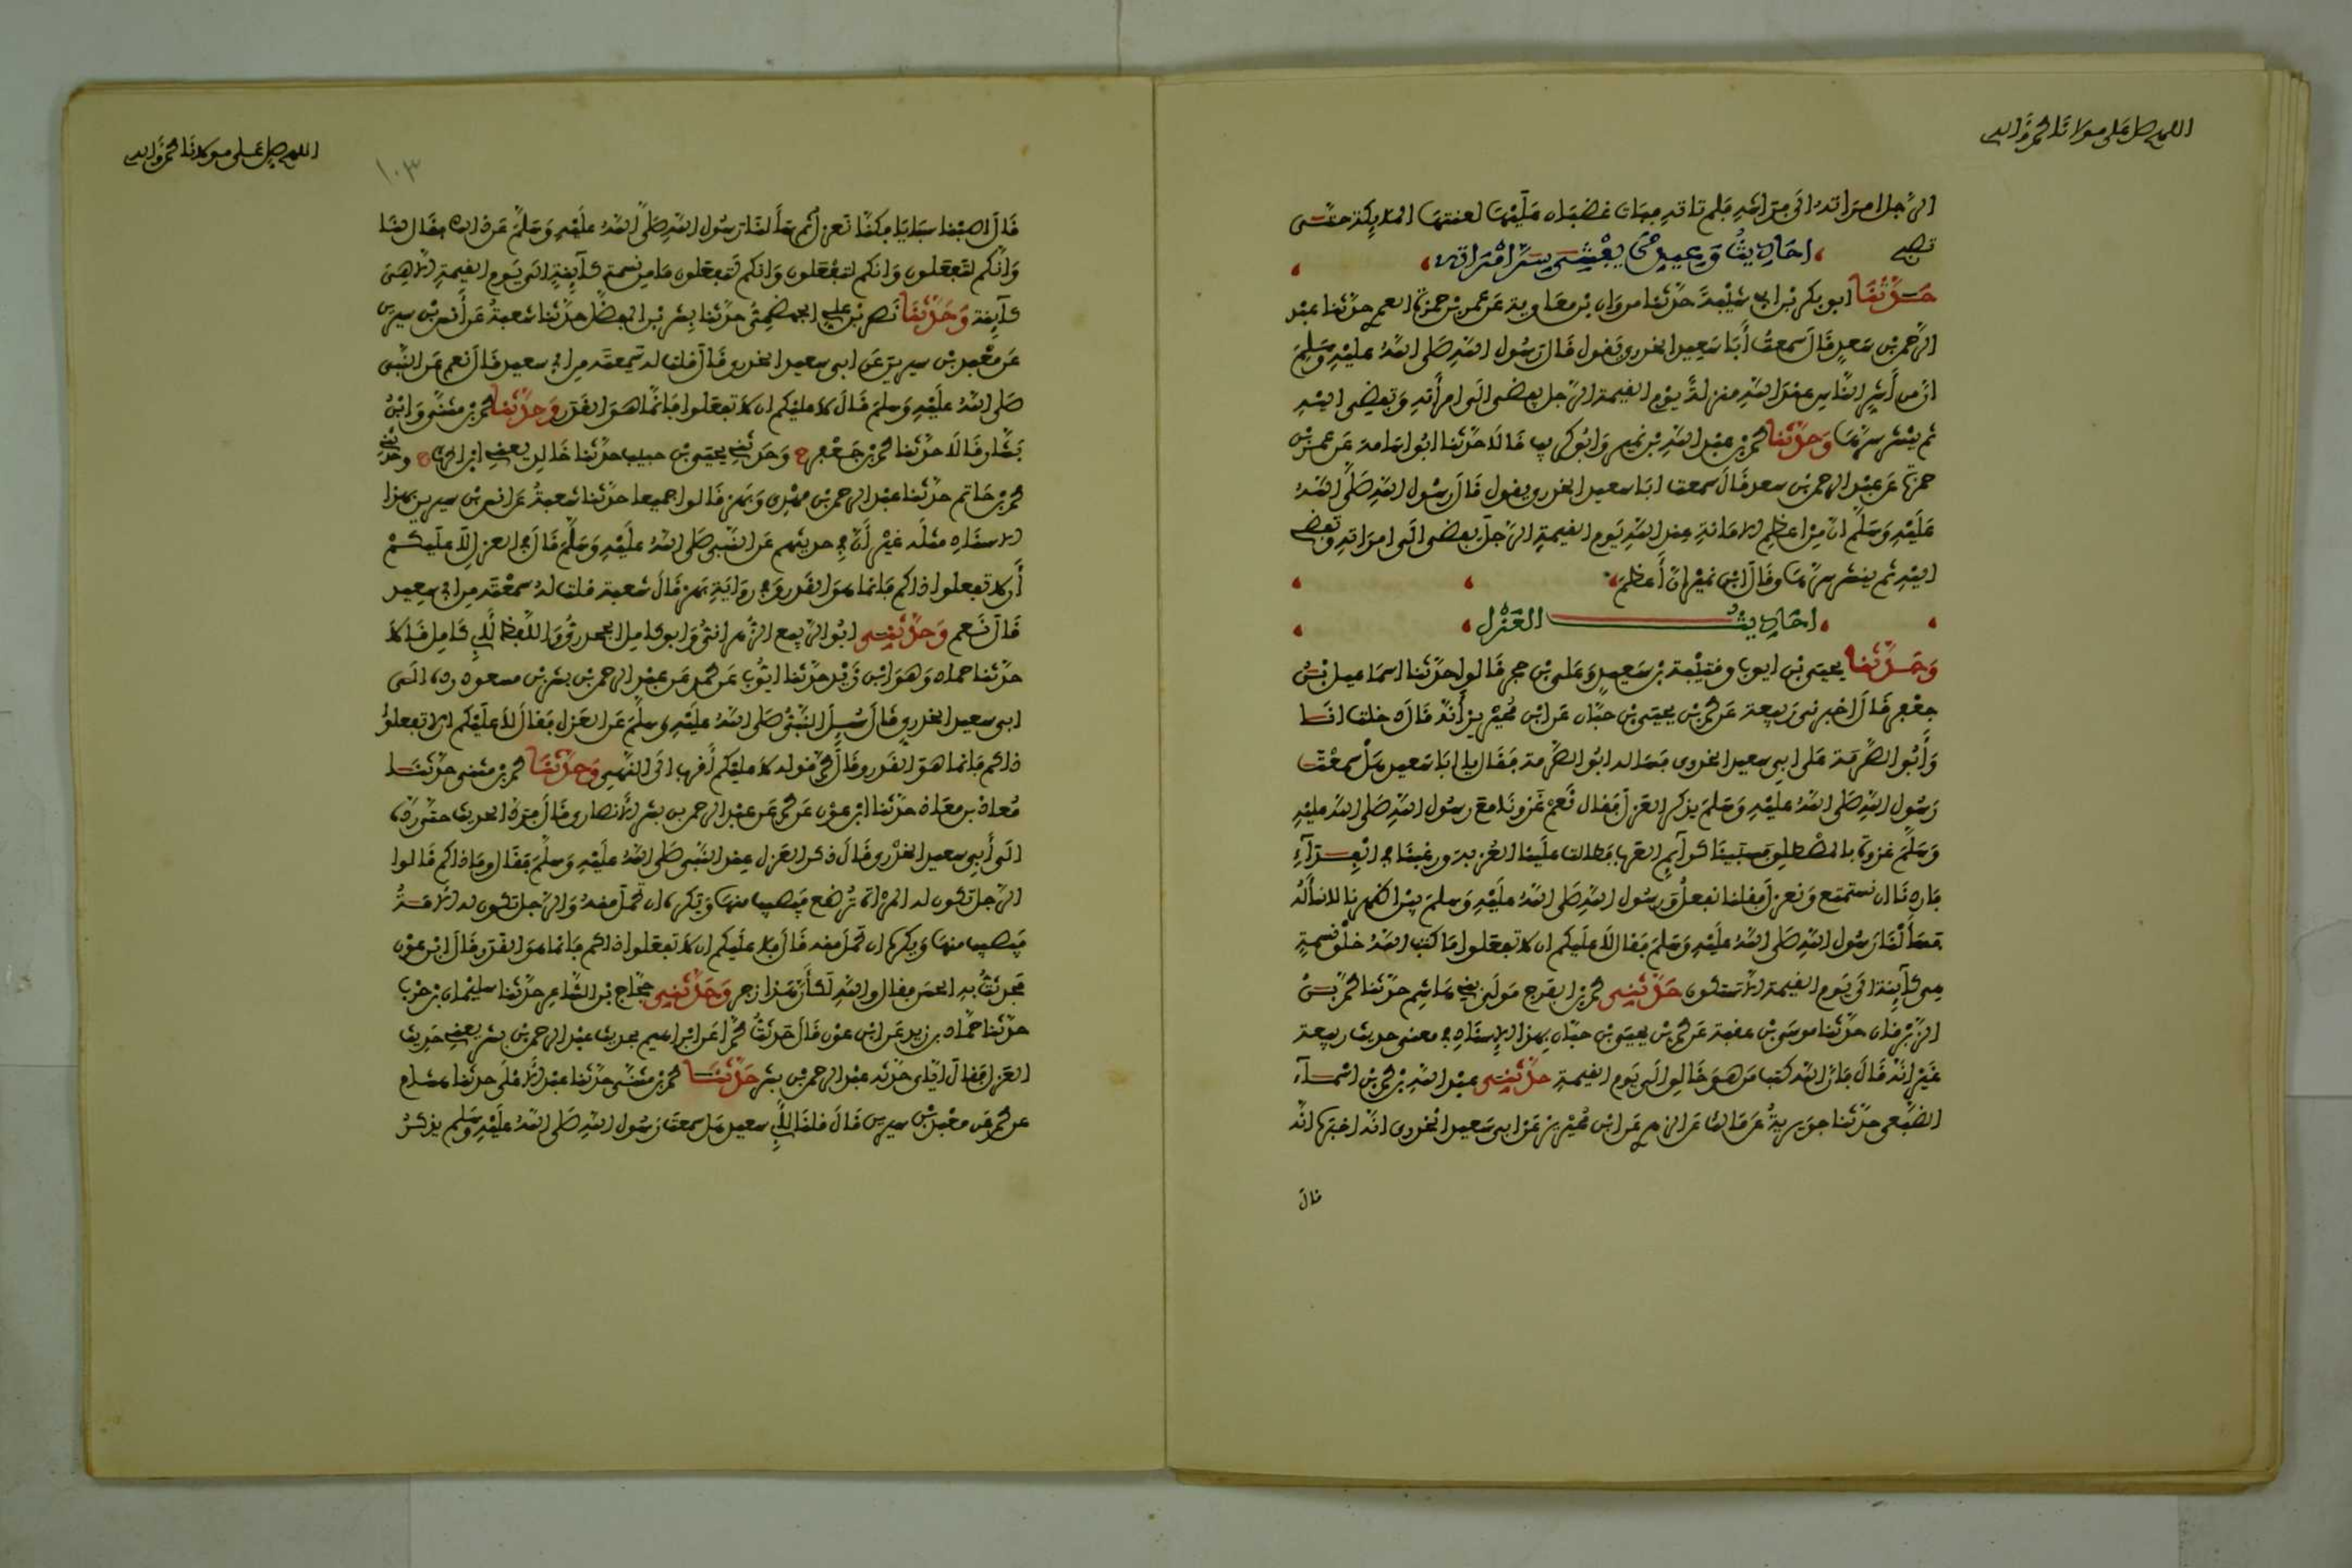 اللهم صل على مولانا محمد وآله
الرجل امراته الى فراشه فلم تاته فبات غضبان عليها لعنتها الملايكة حتى
تصبح احاديث وعيد من يفشى سر امراته
حدثنا ابو بكر بن ابى شيبة حدثنا مروان بن معاوية عن عمر بن حمزة العمرى حدثنا عبد
الرحمن بن سعد قال سمعت أبا سعيد الخدرى يقول قال رسول الله صلى الله عليه وسلم
ان من أشر الناس عند الله منزلة يوم القيمة الرجل يفضى الى امرأته وتفضى اليه
ثم ينشر سرها وحدثنا محمد بن عبد الله بن نمير وابو كريب قالا حدثنا ابو اسامة عن عمر بن
حمزة عن عبد الرحمن بن سعد قال سمعت ابا سعيد الخدرى يقول قال رسول الله صلى الله
عليه وسلم ان من اعظم الامانة عند الله يوم القيمة الرجل يفضى الى امراته وتفضى
اليه ثم ينشر سرها وقال ابن نمير ان أعظم
احاديث العزل
وحدثنا يحيى بن ايوب وقتيبة بن سعيد وعلى بن حجر قالوا حدثنا اسماعيل بن
جعفر قال اخبرنى ربيعة عن محمد بن يحيى بن حبان عن ابن محيريز أنه قال دخلت انا
وأبو الصرمة على ابى سعيد الخدرى فسأله ابو الصرمة فقال يا ابا سعيد هل سمعت
رسول الله صلى الله عليه وسلم يذكر العزل فقال نعم غزونا مع رسول الله صلى الله عليه
وسلم غزوة بالمصطلق فسبينا كرآيم العرب فطالت علينا العزبة ورغبنا فى الفدآء
فاردنا ان نستمتع ونعزل فقلنا نفعل ورسول الله صلى الله عليه وسلم بين اظهرنا لا نسأله
فسألنا رسول الله صلى الله عليه وسلم فقال لا عليكم ان لا تفعلوا ما كتب الله خلق نسمة
هى كآينة الى يوم القيمة الا ستكون حدثنى محمد بن الفرج مولى بنى هاشم حدثنا محمد بن
الزبرقان حدثنا موسى بن عقبة عن محمد بن يحيى بن حبان بهذا الاسناد فى معنى حديث ربيعة
غير انه قال فان الله كتب من هو خالق الى يوم القيمة حدثنى عبد الله بن محمد بن اسمآء
الضبعى حدثنا جويرية عن مالك عن الزهرى عن ابن محيريز عن ابى سعيد الخدرى انه اخبره انه
قال
اللهم صل على مولانا محمد وآله
١٠٣
قال اصبنا سبايا فكنا نعزل ثم سألنا رسول الله صلى الله عليه وسلم عن ذلك فقال لنا
وانكم لتفعلون وانكم لتفعلون وانكم لتفعلون ما من نسمة كآينة الى يوم القيمة الا هى
كآينة وحدثنا نصر بن على الجهضمى حدثنا بشر بن المفضل حدثنا شعبة عن أنس بن سيرين
عن معبد بن سيرين عن ابى سعيد الخدرى قال قلت له سمعته من ابى سعيد قال نعم عن النبى
صلى الله عليه وسلم قال لا عليكم ان لا تفعلوا فانما هو القدر وحدثنا محمد بن مثنى وابن
بشار قالا حدثنا محمد بن جعفر ح وحدثنى يحيى بن حبيب حدثنا خالد يعنى ابن الحرث ح وحدثنى
محمد بن حاتم حدثنا عبد الرحمن بن مهدى وبهز قالوا جميعا حدثنا شعبة عن انس بن سيرين بهذا
الاسناد مثله غير أن فى حديثهم عن النبى صلى الله عليه وسلم قال فى العزل لا عليكم
أن لا تفعلوا ذاكم فانما هو القدر وفى رواية بهز قال شعبة قلت له سمعته من ابى سعيد
قال نعم وحدثنى ابو الربيع الزهرانى وابو كامل الجحدرى واللفظ لأبى كامل قالا
حدثنا حماد وهو ابن زيد حدثنا ايوب عن محمد عن عبد الرحمن بن بشر بن مسعود رده الى
ابى سعيد الخدرى قال سئل النبى صلى الله عليه وسلم عن العزل فقال لا عليكم الا تفعلوا
ذاكم فانما هو القدر وقال محمد قوله لا عليكم أقرب الى النهى وحدثنا محمد بن مثنى حدثنا
معاذ بن معاذ حدثنا ابن عون عن محمد عن عبد الرحمن بن بشر الأنصارى قال فرد الحديث حتى رده
الى أبى سعيد الخدرى قال ذكر العزل عند النبى صلى الله عليه وسلم فقال وما ذاكم قالوا
الرجل تكون له المرأة ترضع فيصيب منها ويكره ان تحمل منه والرجل تكون له الأمة
فيصيب منها ويكره ان تحمل منه قال فلا عليكم ان لا تفعلوا ذاكم فانما هو القدر قال ابن عون
فحدثت به الحسن فقال والله لكأن هذا زجر وحدثنى حجاج بن الشاعر حدثنا سليمان بن حرب
حدثنا حماد بن زيد عن ابن عون قال حدثت محمدا عن ابراهيم بحديث عبد الرحمن بن بشر يعنى حديث
العزل فقال اياى حدثه عبد الرحمن بن بشر حدثنا محمد بن مثنى حدثنا عبد الأعلى حدثنا هشام
عن محمد عن معبد بن سيرين قال قلنا لأبى سعيد هل سمعت رسول الله صلى الله عليه وسلم يذكر